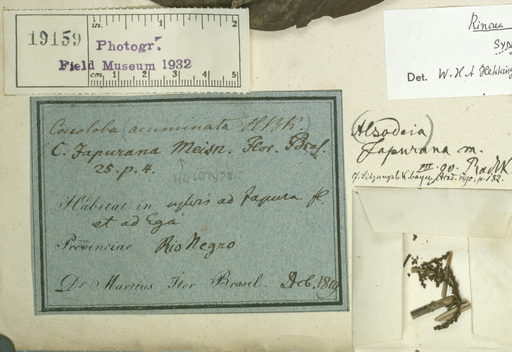 19159
in. 1 2
Photogr.
Field Museum 1932
cm. 1 2 3 4 5
Rinorea
Syn
Det. W. H. A. Hekking
Coccoloba acuminata HBK
C. Japurana Meisn. Flor. Bras.
25. p. 4.
Habitat in sylvis ad Japura fl.
et ad Ega
Provinciae Rio Negro
Dr Martius Iter Brasil. Dcb. 1819
(Alsodeia)
Japurana m.
III. 90. Radlk